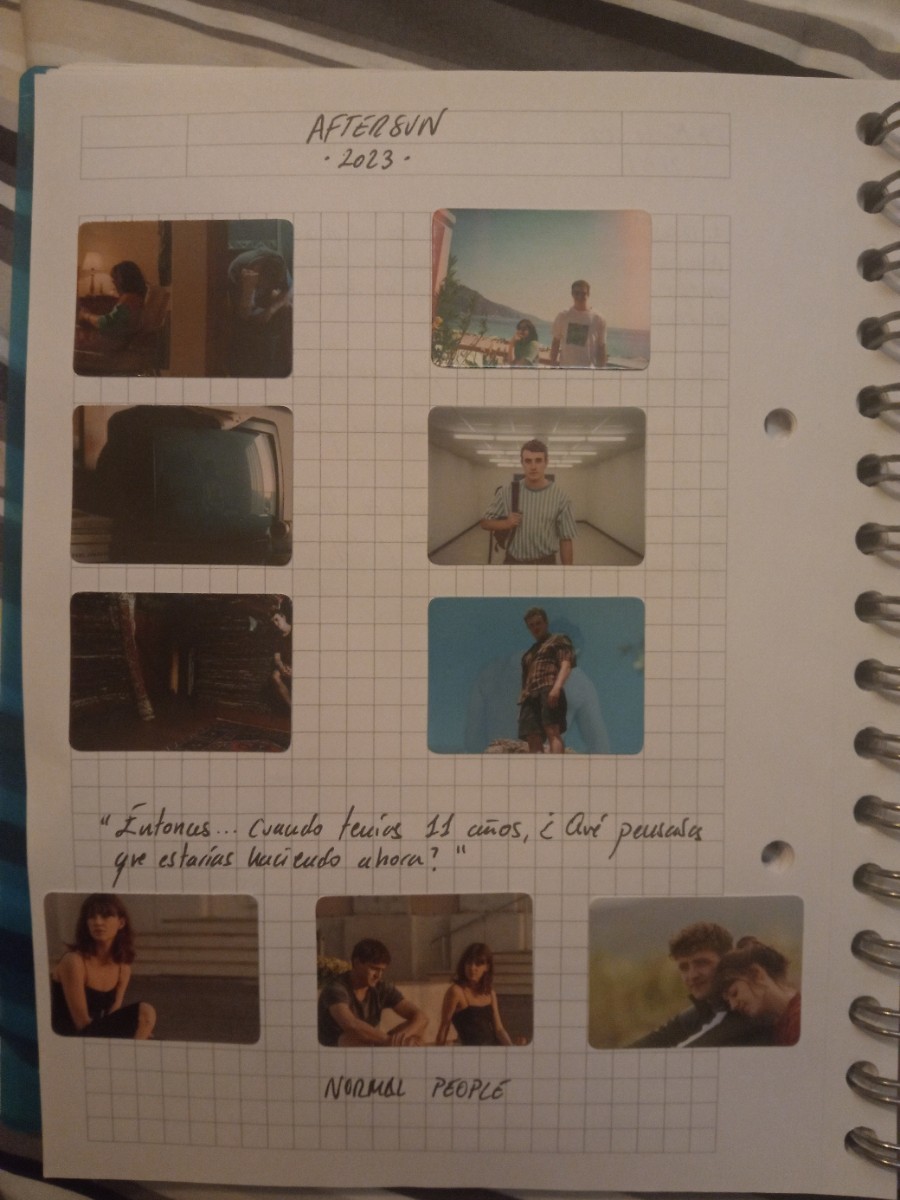 AFTERSUN
·2023·
"Entonces... cuando tenías 11 años, ¿Qué pensabas
que estarías haciendo ahora?"
NORMAL PEOPLE